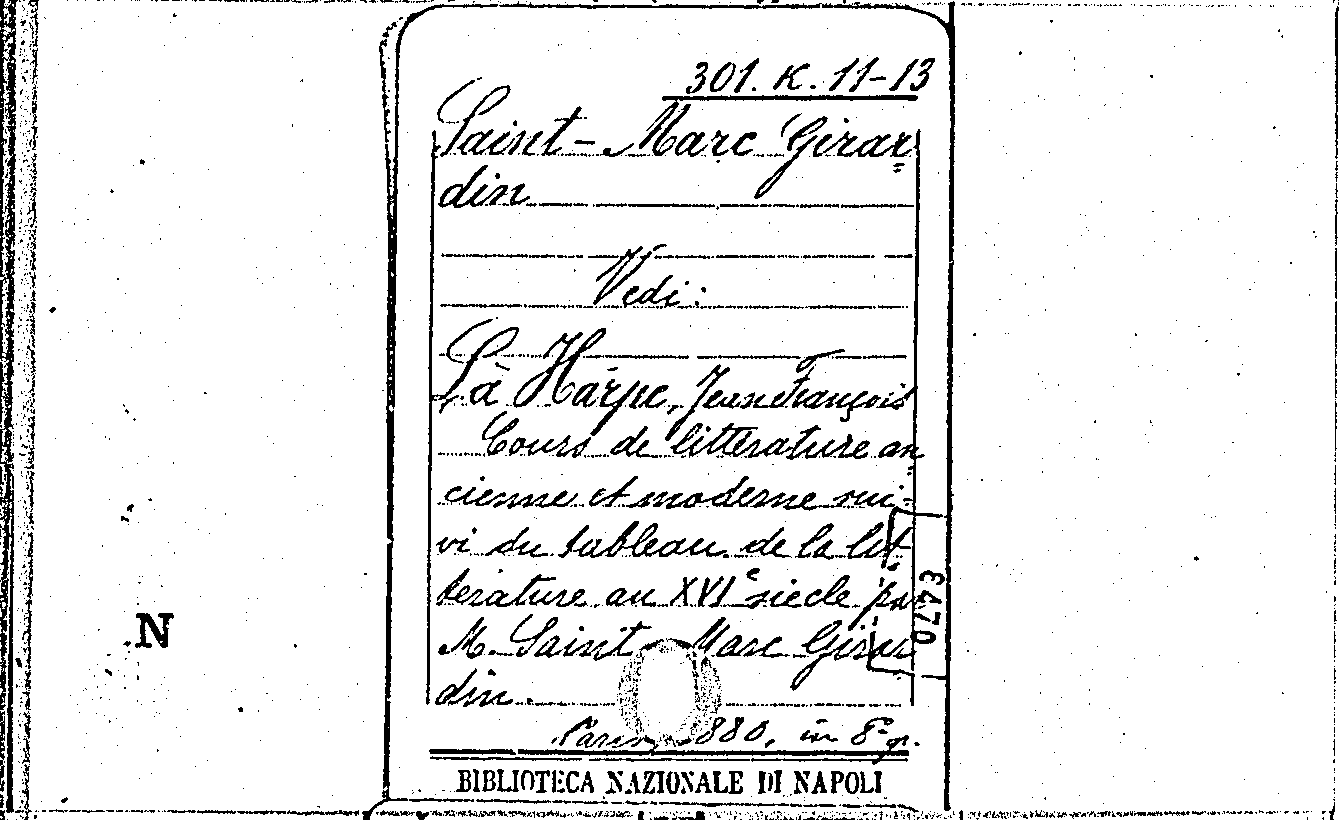 301. K. 11-13
Saint-Marc Girar=
din
Vedi:
La Harpe, Jean François
Cours de littérature an=
cienne et moderne sui=
vi du tableau de la lit=
térature au XVIe siècle par
M. Saint-Marc Girar
din.
Paris, 1880, in 8° gr.
BIBLIOTECA NAZIONALE DI NAPOLI
3470
N